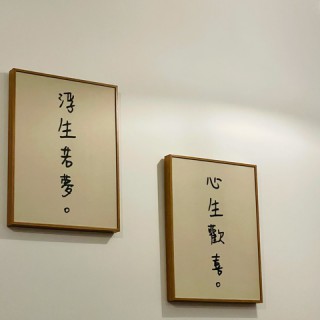 浮生若夢。
心生歡喜。